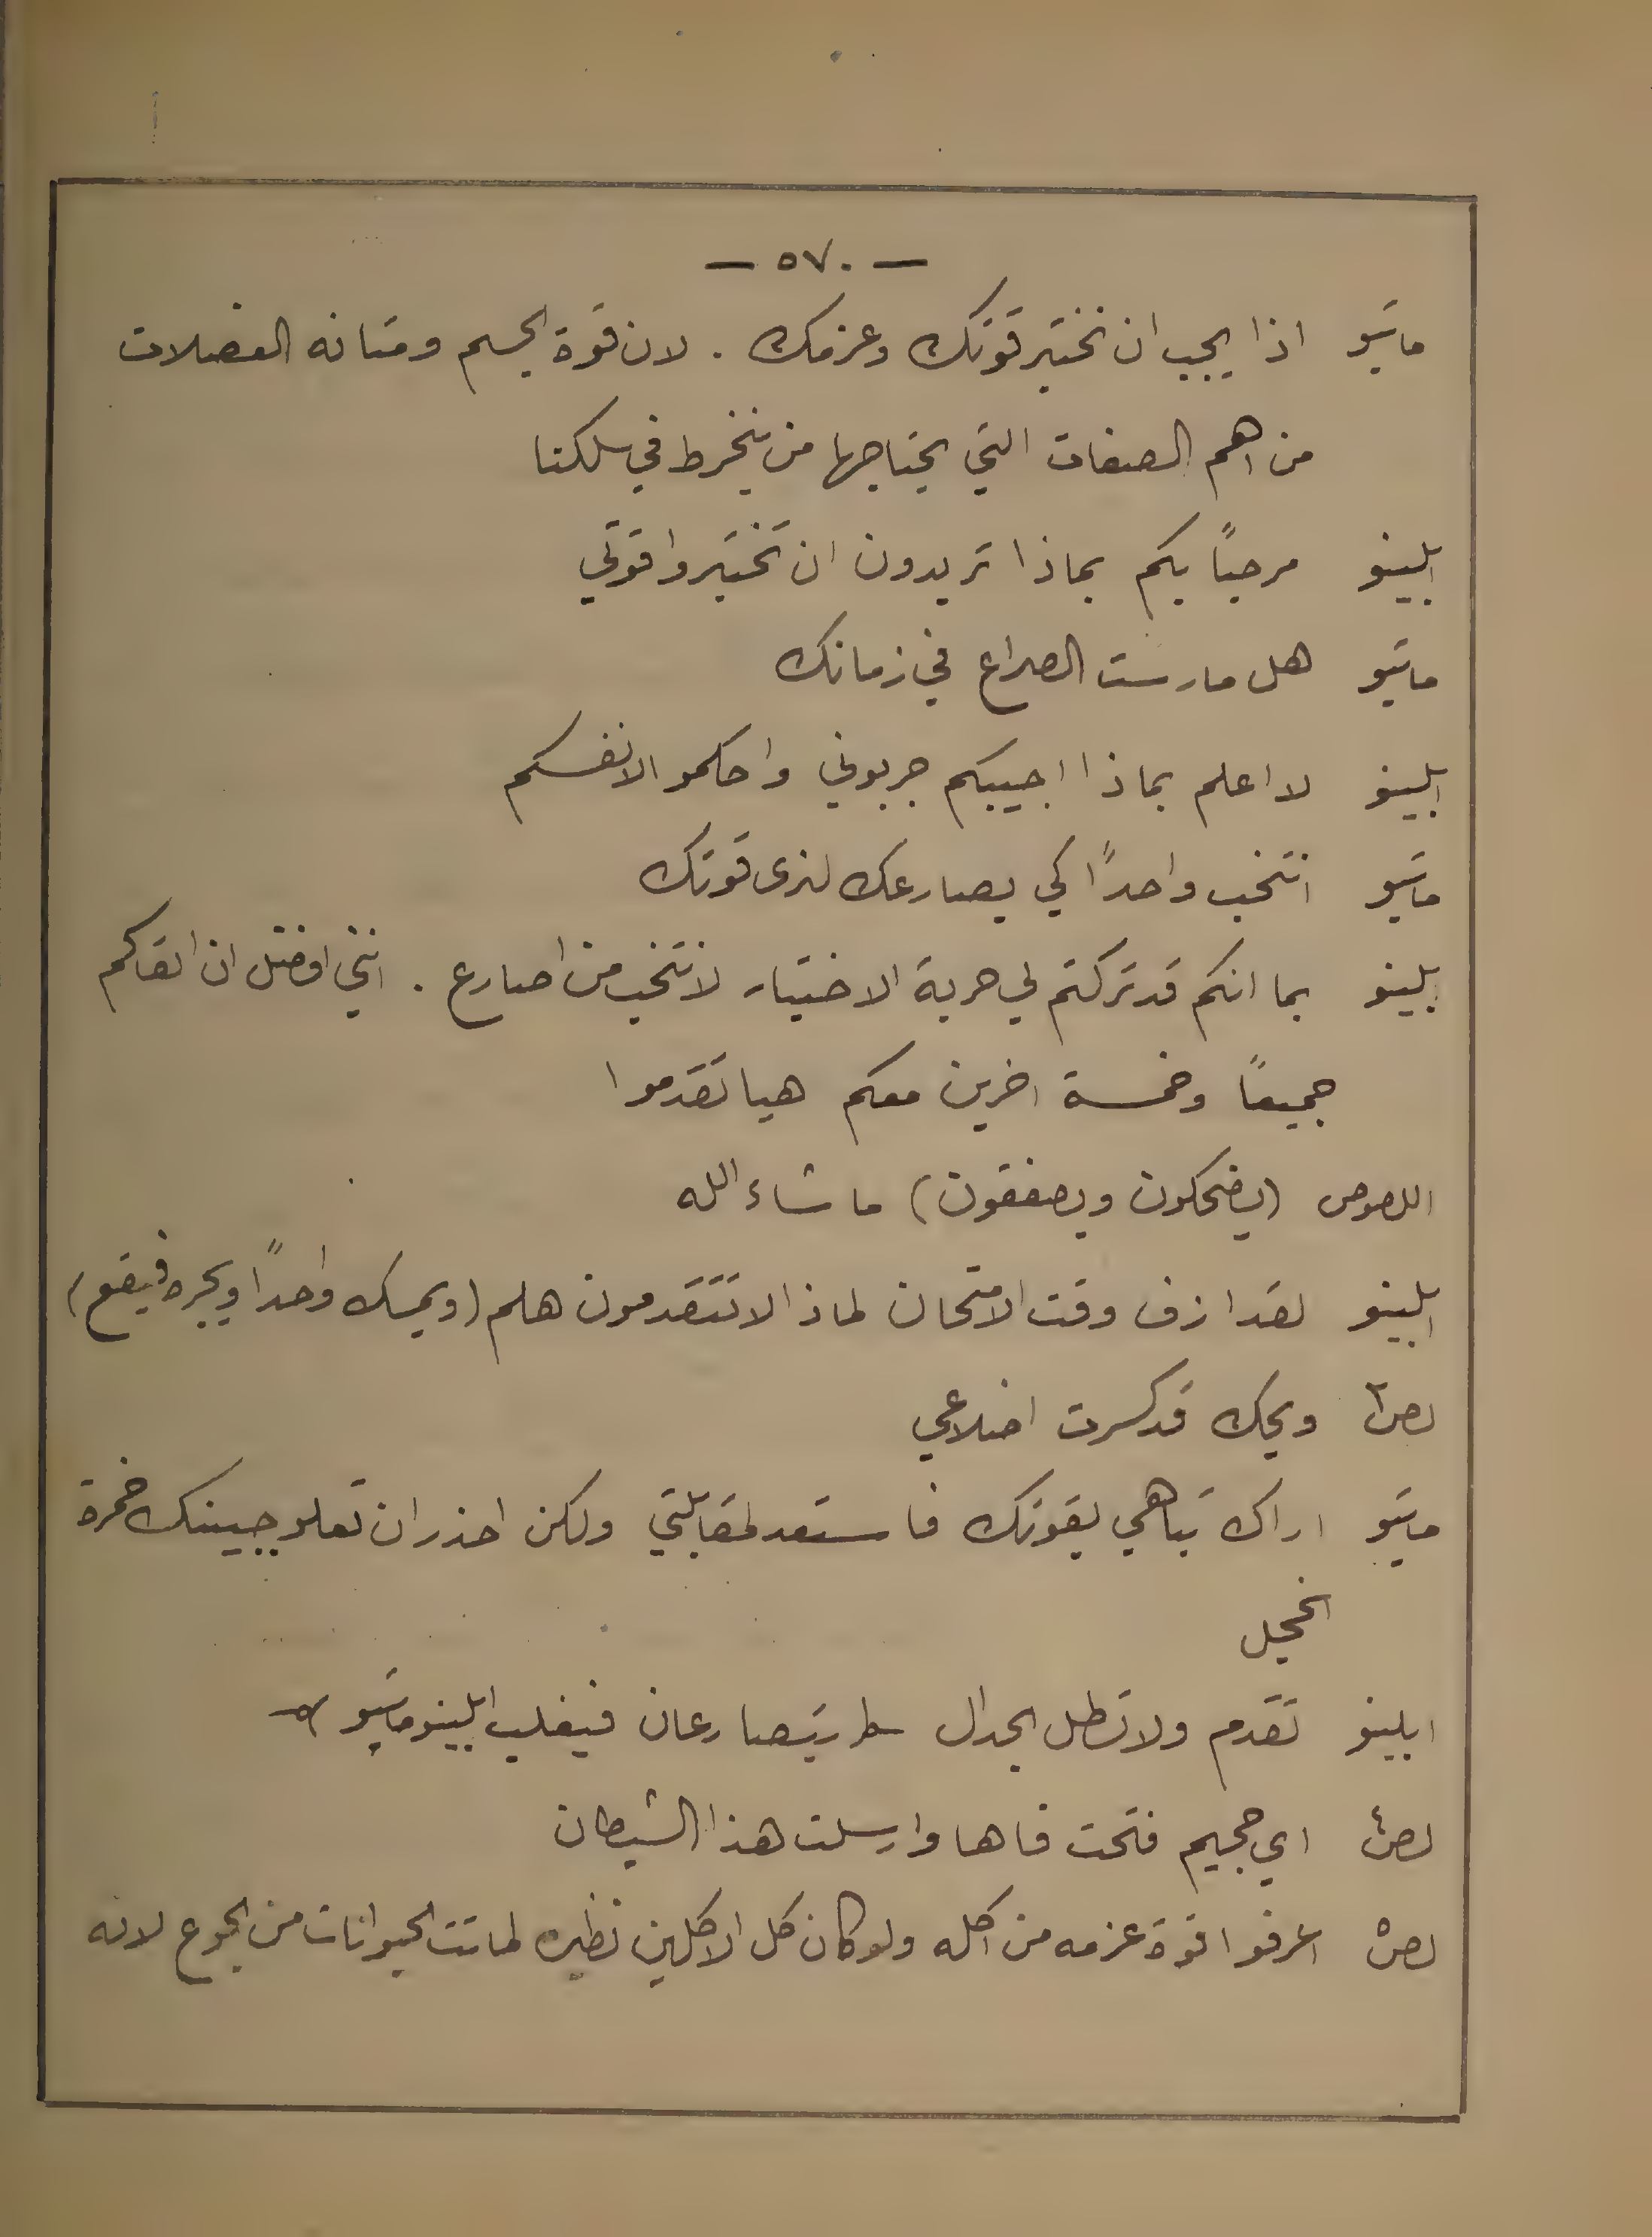 — ٥٧٠ —
ماتيو اذا يجب ان نختبر قوتك وعزمك . لان قوة الجسم ومتانه العضلات
من اهم الصفات التي يحتاجها من ينخرط في سلكنا
ابلينو مرحباً بكم بماذا تريدون ان تختبروا قوتي
ماتيو هل مارست الصراع في زمانك
ابلينو لا اعلم بماذا اجيبكم جربوني واحكموا لانفسكم
ماتيو انتخب واحداً كي يصارعك لنرى قوتك
ابلينو بما انكم قد تركتم لي حرية الاختيار لانتخب من اصارع . انني افضل ان القاكم
جميعاً وخمسة اخرين معكم هيا تقدموا
اللصوص (يضحكون ويصفقون) ما شاء الله
ابلينو لقد ازف وقت الامتحان لماذا لا تتقدمون هلم (ويمسك واحداً ويجره فيقع)
لص٢ ويحك قد كسرت اضلاعي
ماتيو اراك تباهي بقوتك فاستعد لمقابلتي ولكن احذر ان تعلو جبينك خمرة
الخجل
ابلينو تقدم ولا تطل الجدال يتصارعان فيغلب ابلينو ماتيو
لص٤ اي جحيم فتحت فاها وارسلت هذا الشيطان
لص٥ اعرفوا قوة عزمه من اكله ولو كان كل الاكلين نظيره لماتت الحيوانات من الجوع لانه